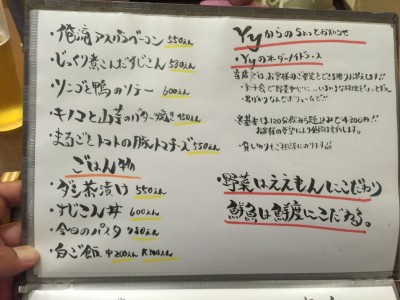 ・俺流アスパラベーコン 550えん
・じっくり煮こんだすじこん 580えん
・リンゴと鴨のソテー 600えん
・キノコと山芋のバター焼き 450えん
・まるごとトマトの豚トマチーズ 550えん
ごはん物
・ダシ茶漬け 550えん
・すじこん丼 600えん
・今日のパスタ 780えん
・白ご飯 中200えん 大300えん
Yyからのちょっとお知らせ
Yyのオーダーメイドコース
当店では、お客様のご要望にできる限りお応えします!!
飲み放題
基本は120分飲み放題込みで4200円!!
・貸し切りもご相談にのります
・野菜はええもんにこだわり
鮮魚は鮮度にこだわる。